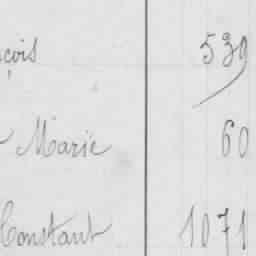 çois 539
Marie 60
Constant 1071